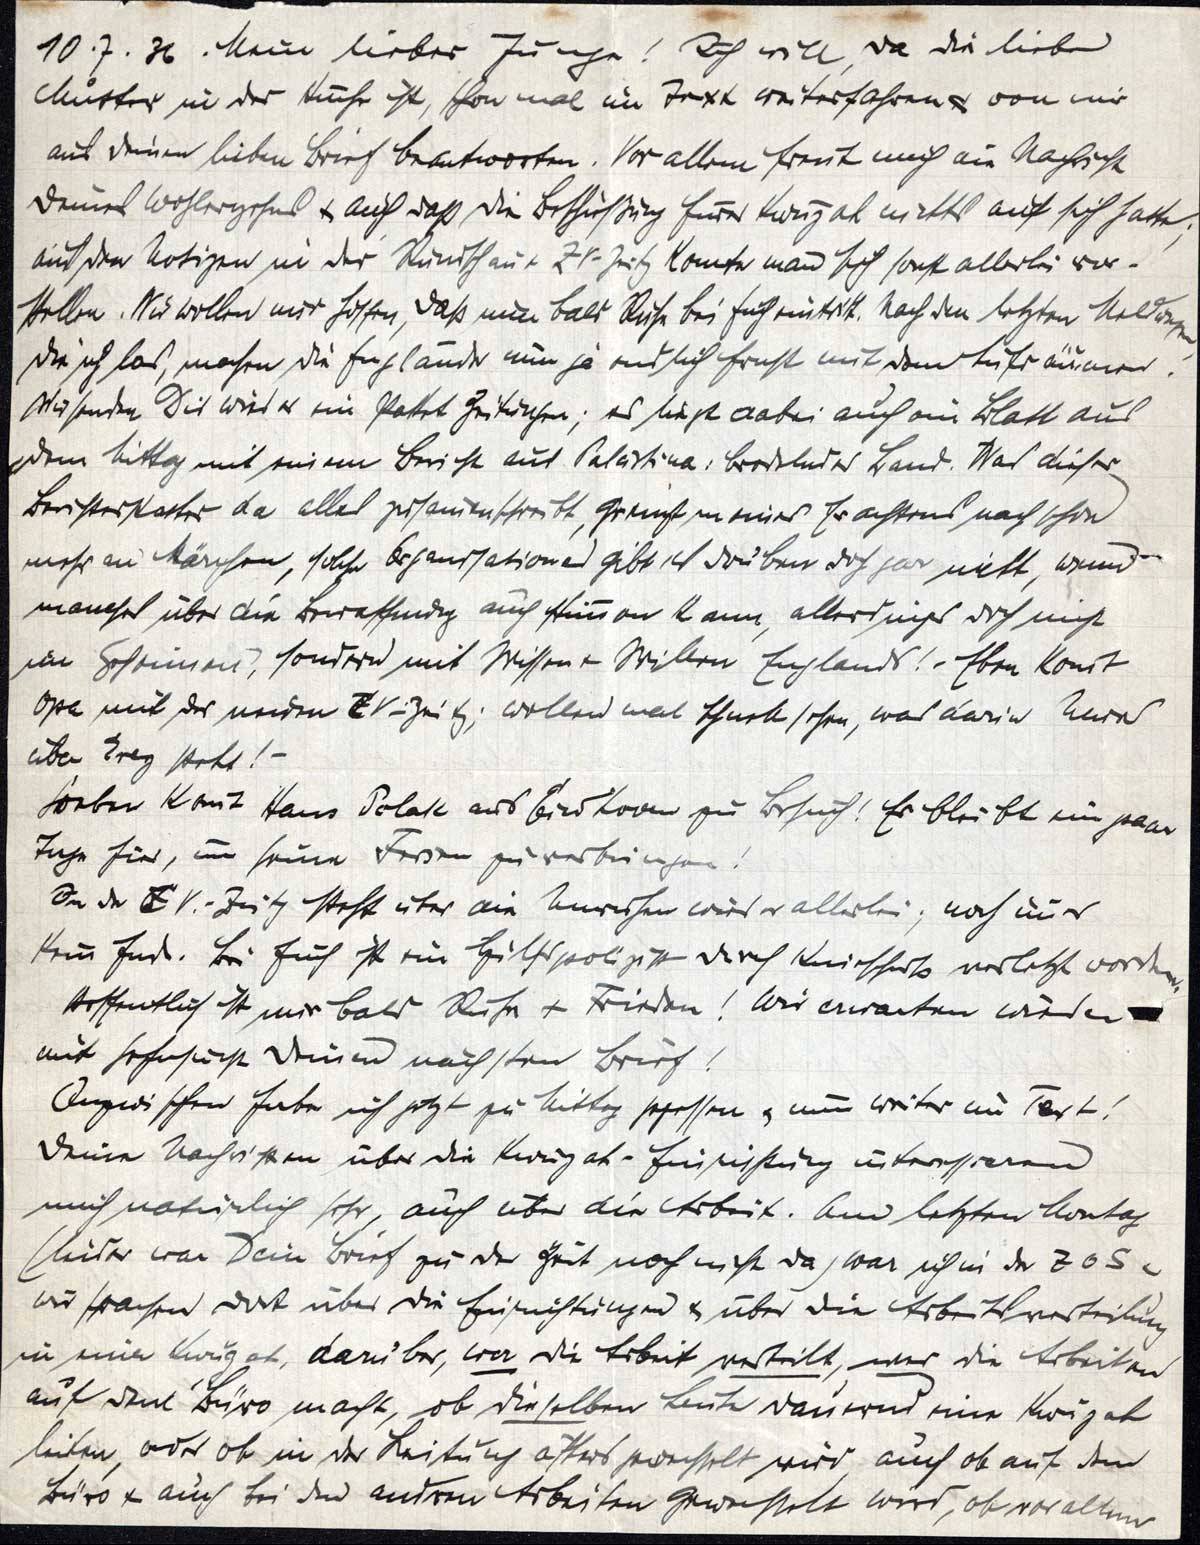 10.7.36. Mein lieber Junge! Ich will, da die liebe
Mutter in der Küche ist, schon mal im Text weiterfahren & von mir
aus Deinen lieben Brief beantworten. Vor allem freut mich die Nachricht
Deines Wohlergehens & auch, daß die Beschießung Eurer Kwuzah nichts auf sich hatte,
aus den Notizen in der Rundschau & ZV-Zeitg konnte man sich sonst allerlei vor-
stellen. Wir wollen nur hoffen, daß nun bald Ruhe bei Euch eintritt. Nach den letzten Meldungen,
die ich las, machen die Engländer nun ja endlich Ernst mit dem Aufräumen.
Wir senden Dir wieder ein Paket Zeitungen; es liegt dabei auch ein Blatt aus
dem Mittag mit einem Bericht aus Palästina: brodelndes Land. Was dieser
Berichterstatter da alles zusammenschreibt, grenzt meines Erachtens nach schon
mehr an Märchen, solche Organisationen gibt es drüben doch gar nicht, wenn
manches über die Bewaffnung auch stimmen kann, allerdings doch nicht
im Geheimen, sondern mit Wissen & Willen Englands! - Eben kommt
Opa mit der neuen CV-Zeitg; wollen mal schnell sehen, was darin Neues
über Erez steht! -
Soeben kommt Hans Polak aus Eindhoven zu Besuch! Er bleibt ein paar
Tage hier, um seine Ferien zu verbringen!
In der CV.-Zeitg steht über die Unruhen wieder allerlei; noch immer
kein Ende. Bei Euch ist ein Hilfspolizist durch Knieschuß verletzt worden.
Hoffentlich ist nur bald Ruhe & Frieden! Wir erwarten wieder
mit Sehnsucht Deinen nächsten Brief!
Inzwischen habe ich jetzt zu Mittag gegessen & nun weiter im Text!
Deine Nachrichten über die Kwuzah-Einrichtung interessieren
mich natürlich sehr, auch über die Arbeit. Am letzten Montag
(leider war Dein Brief zu der Zeit noch nicht da) war ich in der ZOG &
wir sprachen dort über die Einrichtungen & über die Arbeitsverteilung
in einer Kwuzah, darüber, wer die Arbeit verteilt, wer die Arbeiten
auf dem Büro macht, ob dieselben Leute dauernd eine Kwuzah
leiten, oder ob in der Leitung öfters gewechselt wird, auch ob auf dem
Büro & auch bei den andren Arbeiten gewechselt wird, ob vor allem